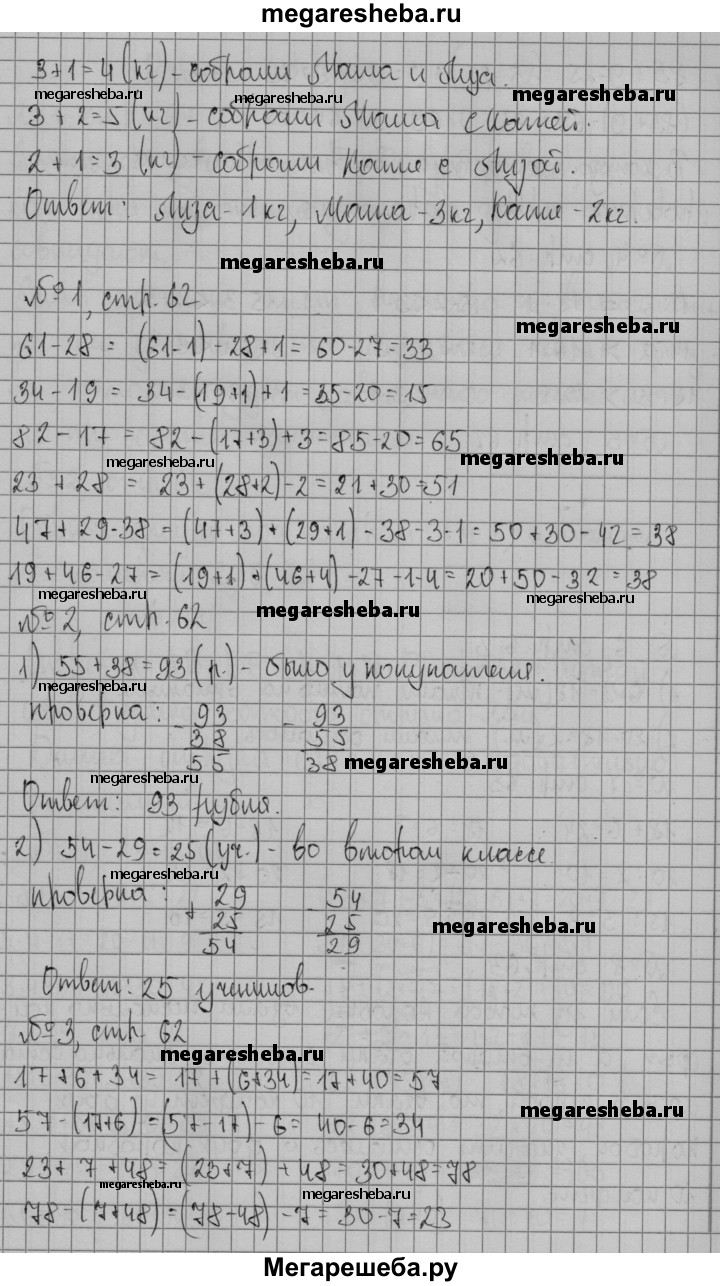 megaresheba.ru
3+1=4(кг) - собрали Маша и Лиза.
megaresheba.ru megaresheba.ru megaresheba.ru
3+2=5(кг) - собрали Маша с Катей.
2+1=3(кг) - собрали Катя с Лизой.
Ответ: Лиза-1кг, Маша-3кг, Катя-2кг.
megaresheba.ru
№1, стр. 62
megaresheba.ru
61-28 = (61-1)-28+1 = 60-27=33
34-19 = 34-(19+1)+1 = 35-20=15
82-17 = 82-(17+3)+3=85-20=65
megaresheba.ru megaresheba.ru
23+28 = 23+(28+2)-2=21+30=51
47+29-38 = (47+3)+(29+1)-38-3-1=50+30-42=38
19+46-27 = (19+1)+(46+4)-27-1-4=20+50-32=38
megaresheba.ru megaresheba.ru megaresheba.ru
№2, стр. 62
1) 55+38=93(р.) - было у покупателя.
megaresheba.ru
проверка: - 93 - 93
38 55
55 38
megaresheba.ru
megaresheba.ru
Ответ: 93 рубля.
2) 54-29=25(уч.) - во втором классе
megaresheba.ru
проверка: + 29 - 54
25 25
54 29
megaresheba.ru
Ответ: 25 учеников.
№3, стр. 62
megaresheba.ru
17+6+34 = 17+(6+34)=17+40=57
57-(17+6)=(57-17)-6=40-6=34
megaresheba.ru
23+7+48=(23+7)+48=30+48=78
megaresheba.ru megaresheba.ru
78-(7+48)=(78-48)-7=30-7=23
Мегарешеба.ру